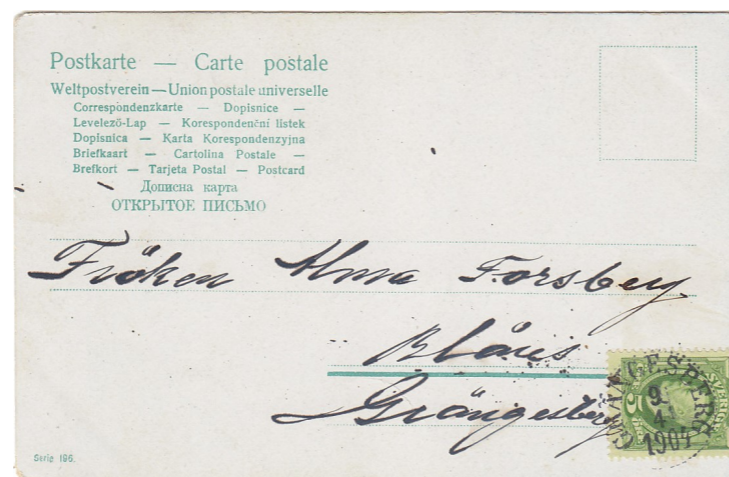 Postkarte — Carte postale
Weltpostverein — Union postale universelle
Correspondenzkarte — Dopisnice —
Levelező-Lap — Korespondenční lístek
Dopisnica — Karta Korespondenzyjna
Briefkaart — Cartolina Postale —
Brefkort — Tarjeta Postal — Postcard
Дописна карта
ОТКРЫТОЕ ПИСЬМО
Fröken Alma Forsberg
Grängesberg
GRÄNGESBERG
9
4
5
SVERIGE
Serie 196.